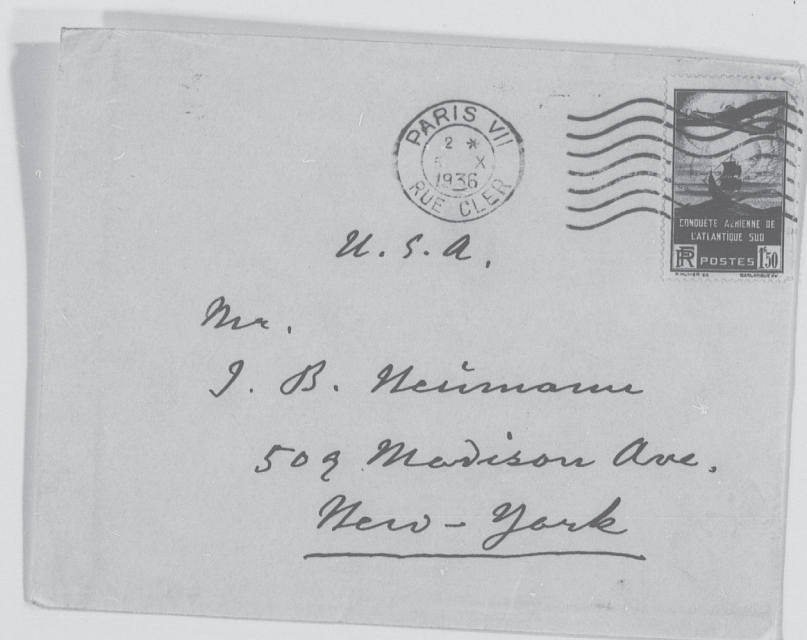 PARIS VII
2 *
5 X
1936
RUE CLER
CONQUÊTE AÉRIENNE DE
L'ATLANTIQUE SUD
RF POSTES 1F50
U.S.A.
Mr.
J. B. Neümann
509 Madison Ave.
New-York